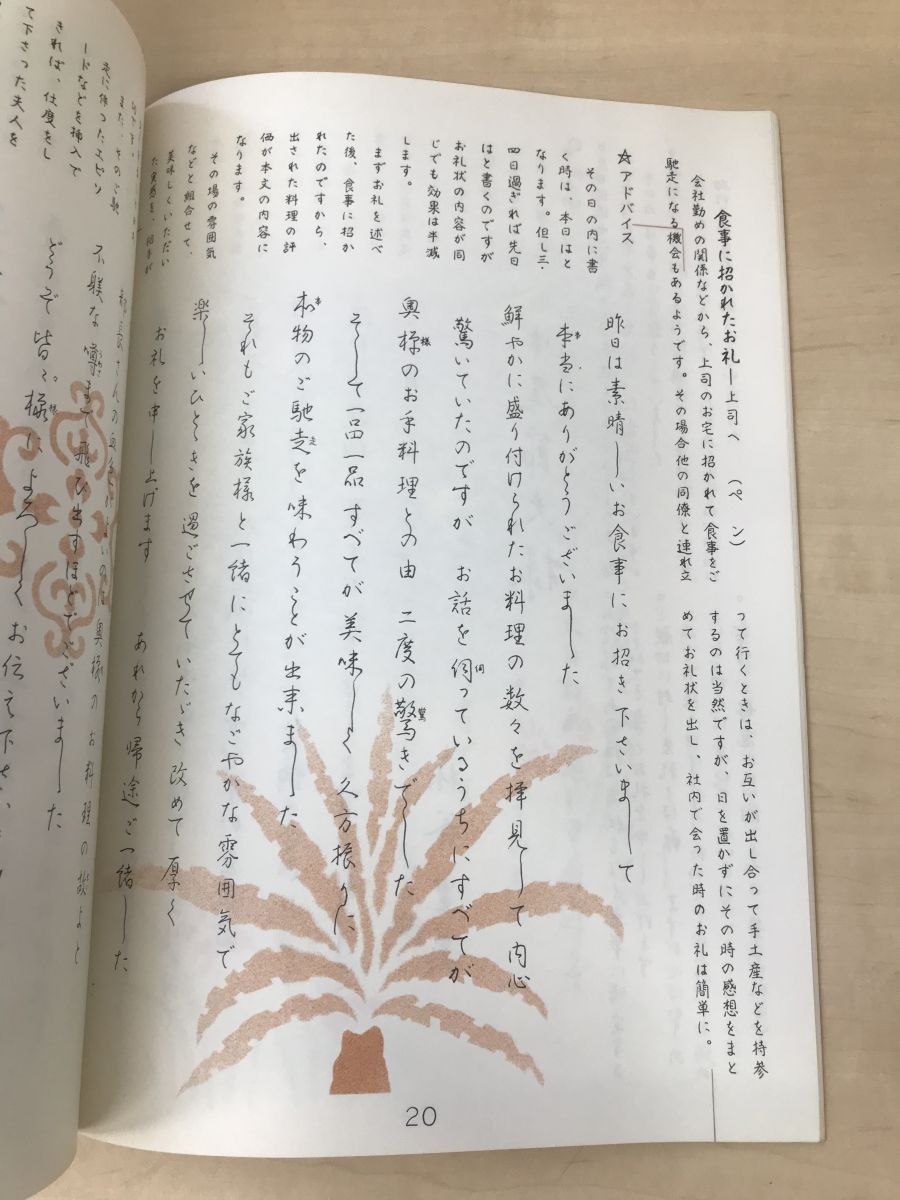 食事に招かれたお礼―上司へ　（ペン）
会社勤めの関係などから、上司のお宅に招かれて食事をご
馳走になる機会もあるようです。その場合他の同僚と連れ立
って行くときは、お互いが出し合って手土産などを持参
するのは当然ですが、日を置かずにその時の感想をまと
めてお礼状を出し、社内で会った時のお礼は簡単に。
☆アドバイス
その日の内に書
く時は、本日はと
なります。但し三・
四日過ぎれば先日
はと書くのですが
お礼状の内容が同
じでも効果は半減
します。
まずお礼を述べ
た後、食事に招か
れたのですから、
出された料理の評
価が本文の内容に
なります。
その場の雰囲気
などと組合せて、
美味しくいただい
た実感を、相手が
昨日は素晴しいお食事にお招き下さいまして
本当にありがとうございました
鮮やかに盛り付けられたお料理の数々を拝見して内心
驚いていたのですが　お話を伺っているうちにすべてが
奥様のお手料理との由　二度の驚きでした
そして一品一品すべてが美味しく　久方振りに
本物のご馳走を味わうことが出来ました
それもご家族様と一緒にとてもなごやかな雰囲気で
楽しいひとときを過ごさせていただき改めて厚く
お礼を申し上げます　あれから帰途ご一緒した
20
走に伴ったエピソ
ードなどを挿入で
きれば、仕度をし
て下さった夫人を
奥様のお料理の故よと
不躾な噂まで飛び出すほどでございました
どうぞ皆々様によろしくお伝え下